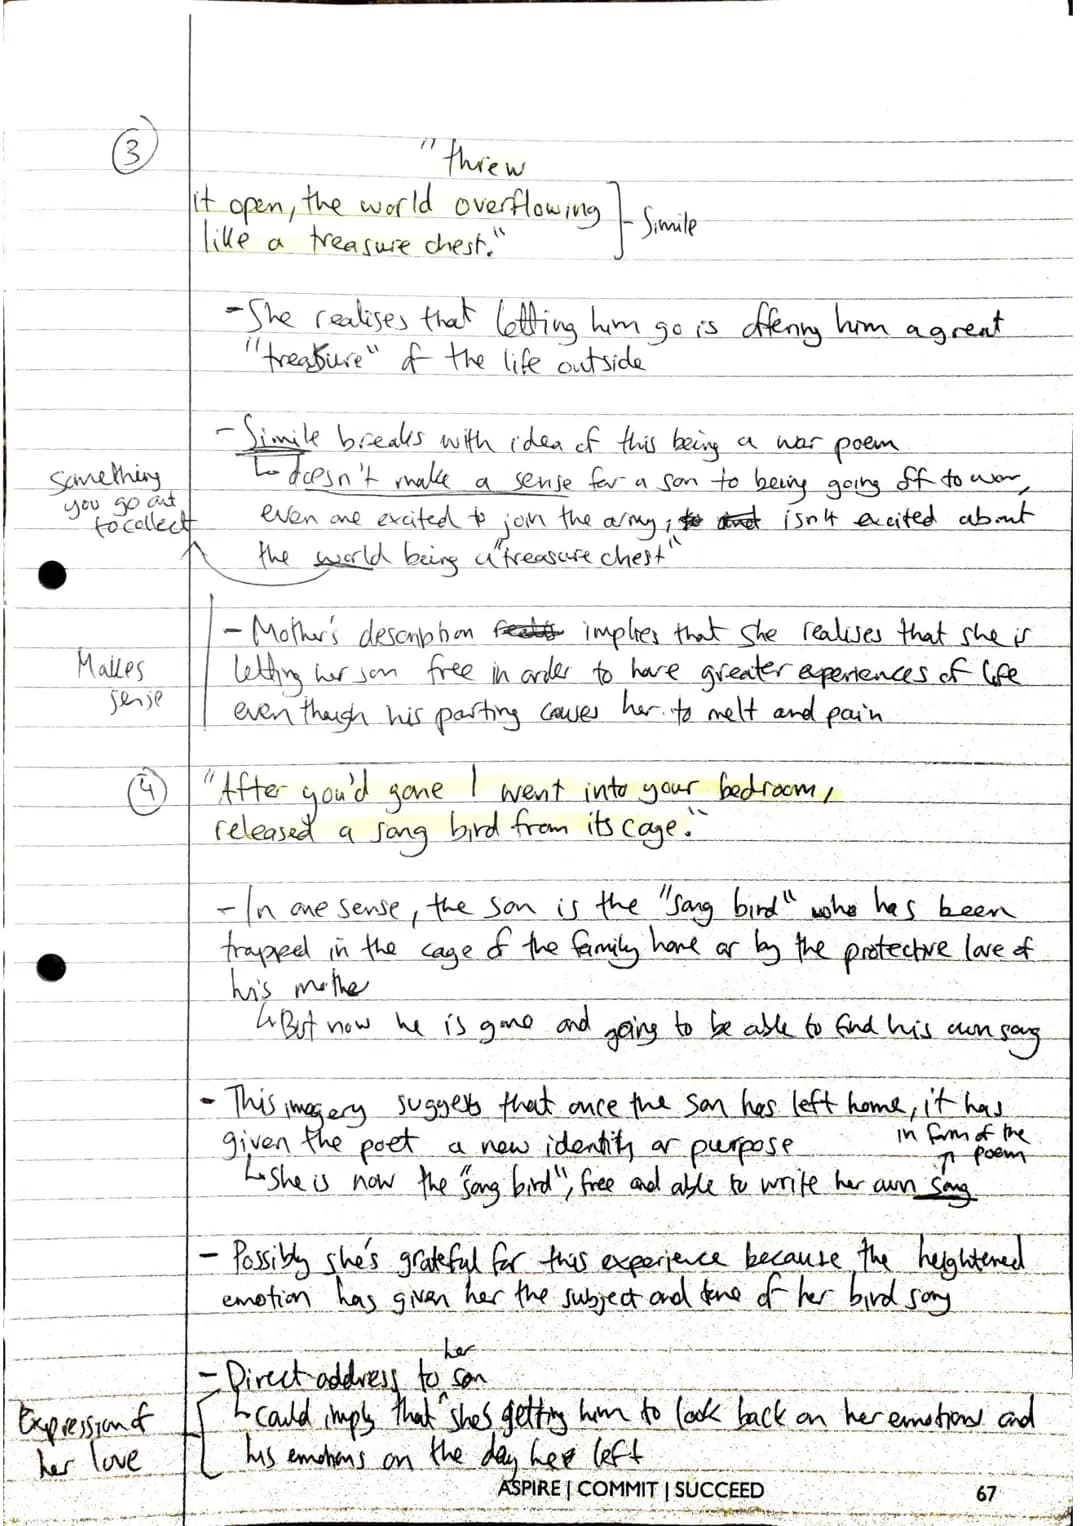 3
"threw
it open, the world overflowing
like a treasure chest."
Simile
-She realises that letting him go is offering him a great
"treasure" of the life outside
-Simile breaks with idea of this being a war poem
↳ doesn't make a sense for a son to being going off to war,
even one excited to join the army, isn't excited about
the world being a "treasure chest"
Something
you go out
to collect
- Mother's description implies that she realises that she is
letting her son free in order to have greater experiences of life
even though his parting causes her to melt and pain
Makes
sense
4
"After you'd gone I went into your bedroom,
released a song bird from its cage."
- In one sense, the son is the "song bird" who has been
trapped in the cage of the family home or by the protective love of
his mother
↳ But now he is gone and going to be able to find his own song
- This imagery suggests that once the son has left home, it has
given the poet a new identity or purpose
in form of the
poem
↳ she is now the "song bird", free and able to write her own song
- Possibly she's grateful for this experience because the heightened
emotion has given her the subject and tone of her bird song
- Direct address to her son
↳ could imply that she's getting him to look back on her emotions and
his emotions on the day he left
Expression of
her love
ASPIRE | COMMIT | SUCCEED
67